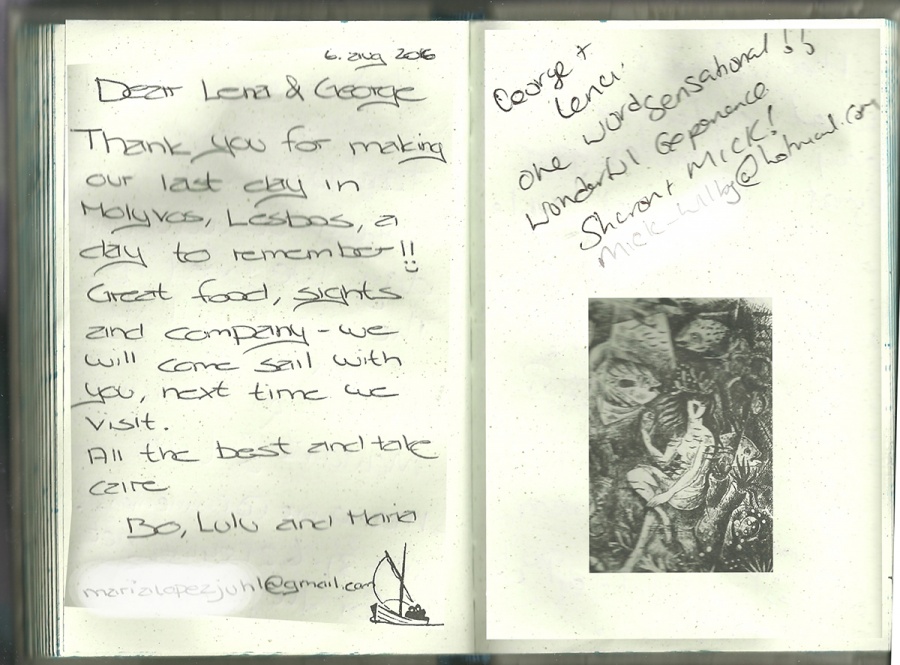 6. aug 2016
Dear Lena & George
Thank you for making
our last day in
Molyvos, Lesbos, a
day to remember!!
Great food, sights
and company - we
will come sail with
you, next time we
visit.
All the best and take
care
Bo, Lulu and Maria
@gmail.com
George +
Lena.
One word sensational!!
Wonderful Experience
Sharon + MICK!
@hotmail.com